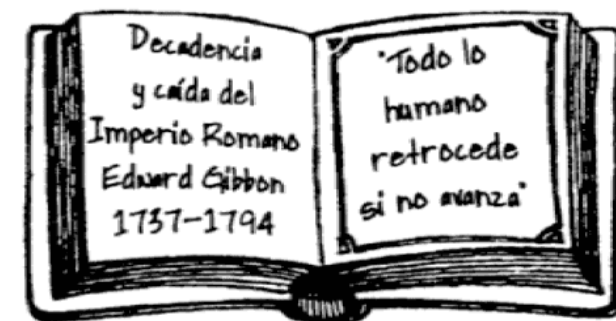 Decadencia
y caída del
Imperio Romano
Edward Gibbon
1737-1794
"Todo lo
humano
retrocede
si no avanza"